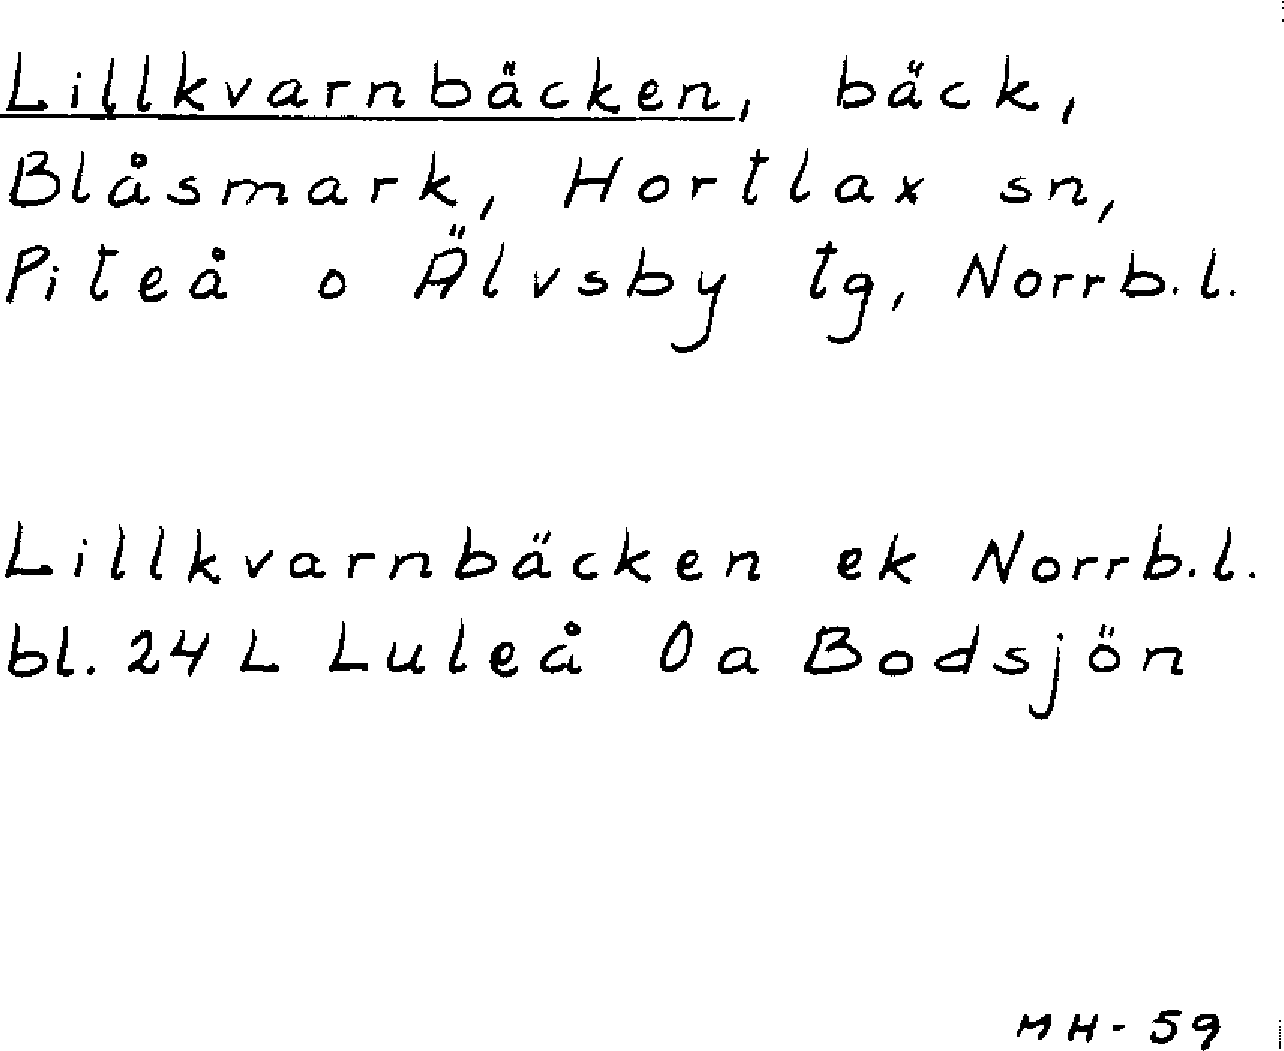 Lillkvarnbäcken, bäck,
Blåsmark, Hortlax sn,
Piteå o Älvsby tg, Norrb.l.
Lillkvarnbäcken ek Norrb.l.
bl. 24 L Luleå 0a Bodsjön
MH-59